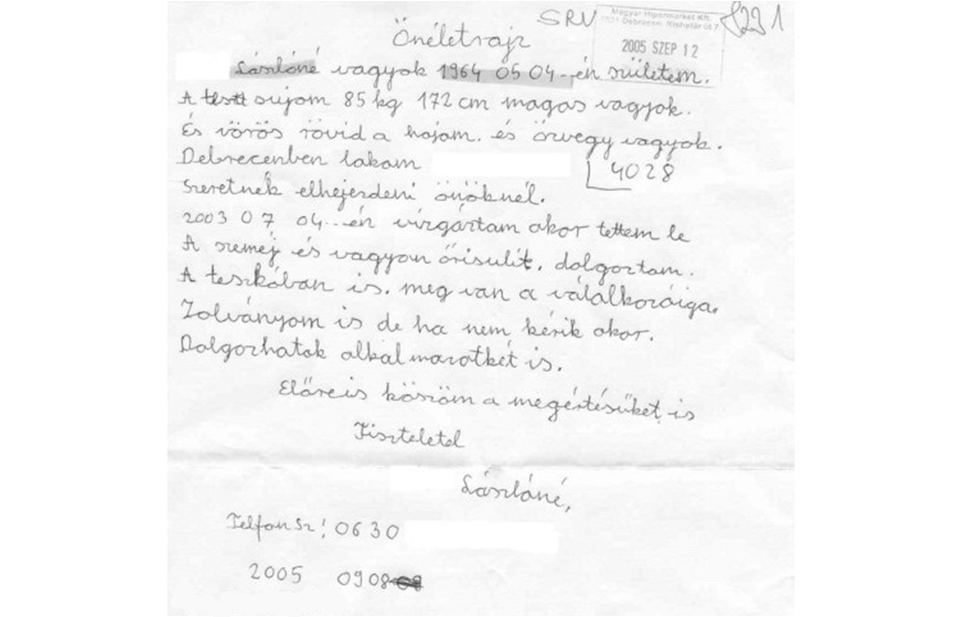 SRV 1221
Magyar Hipermarket Kft.
4031 Debrecen, Kishatár út 7
2005 SZEP 12
Önéletrajz
Lászlóné vagyok 1964 05 04..én születem.
A testt sujom 85 kg 172 cm magas vagyok.
És vörös rövid a hajam. és özvegy vagyok.
Debrecenben lakam
4028
Szeretnék elhejezdeni önöknél.
2003 07 04...én vizgáztam akor tettem le
A szeméj és vagyon őrisulit, dolgoztam.
A teszkóban is. meg van a válalkozáiga.
Zolványom is de ha nem kérik akor.
Dolgozhatok alkalmazotkét is.
Előreis köszöm a megértésüket is
Tisztelettel
Lászlóné,
Telfon Sz! 06 30
2005 09 08